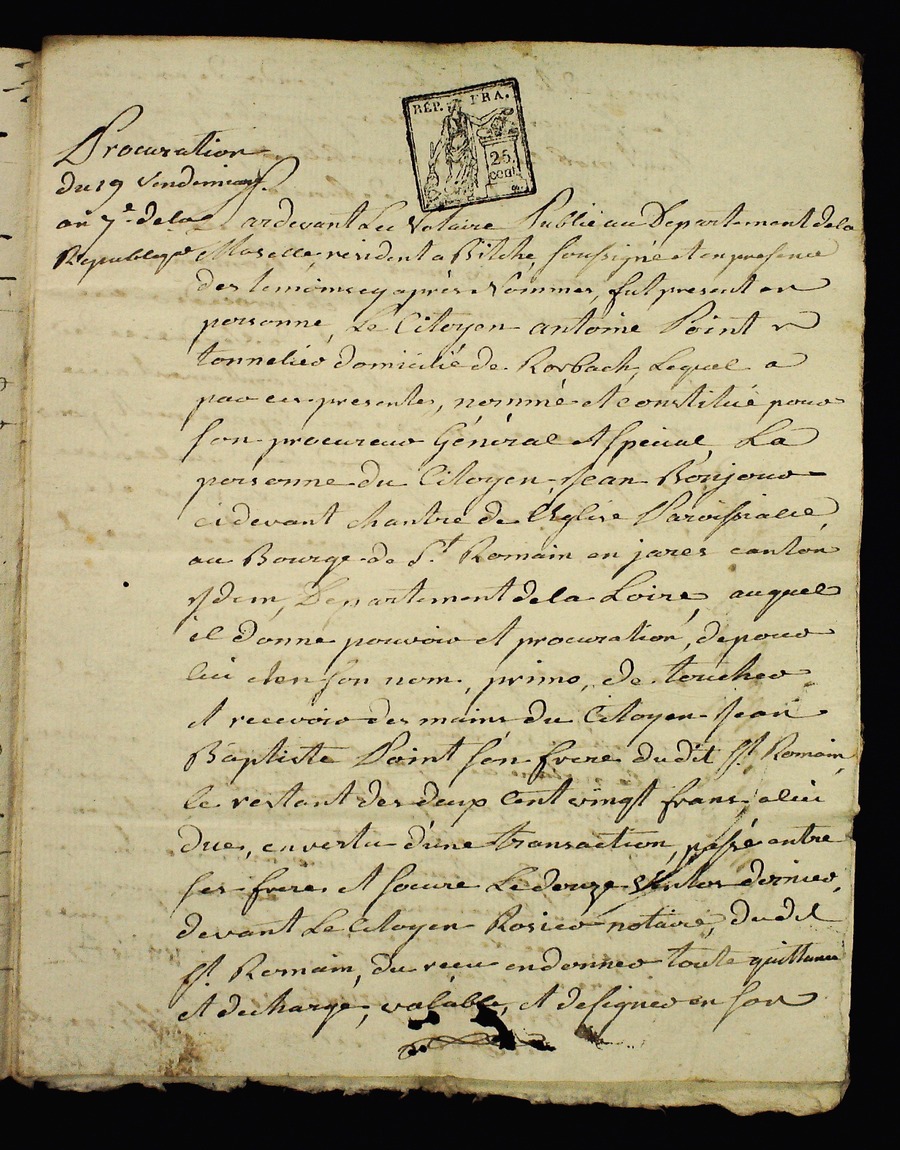 RÉP. FRA.
25
cent.
Procuration
du 19 Vendemiaire
an 7e. de la
Republique
Pardevant Le Notaire Public au Departement de la
Moselle, resident a Bitche, soussigné et en presence
des temoins cy après Nommes, fut present en
personne, Le Citoyen antoine Point
tonnelier domicilié de Rorbach, Lequel a
par ces presentes, nommé et constitué pour
son procureur Général et spécial La
personne du Citoyen Jean Bonjour
cidevant chantre de l'Eglise Paroissialle
au Bourge de St. Romain en jares canton
ydem, Departement de la Loire, auquel
il donne pouvoir et procuration, de pour
lui et en son nom, primo, de toucher
et recevoir des mains du Citoyen Jean
Baptiste Point son frere dudit St. Romain,
le restant des deux Cent vingt frans a lui
due, en vertu d'une transaction, passé entre
ses frere et soeure Le douze dernier,
devant Le Citoyen Rosier notaire, dudit
St. Romain, du recu en donner toute quittance
et decharge, valable, et designer en son